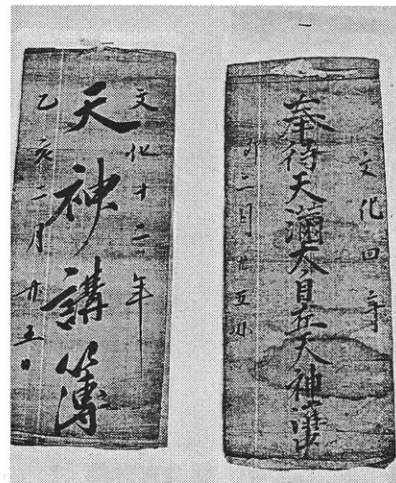 一
文化四年
奉待天滿大自在天神講
卯二月廿五日
文化十二年
天神講簿
乙亥二月廿五日